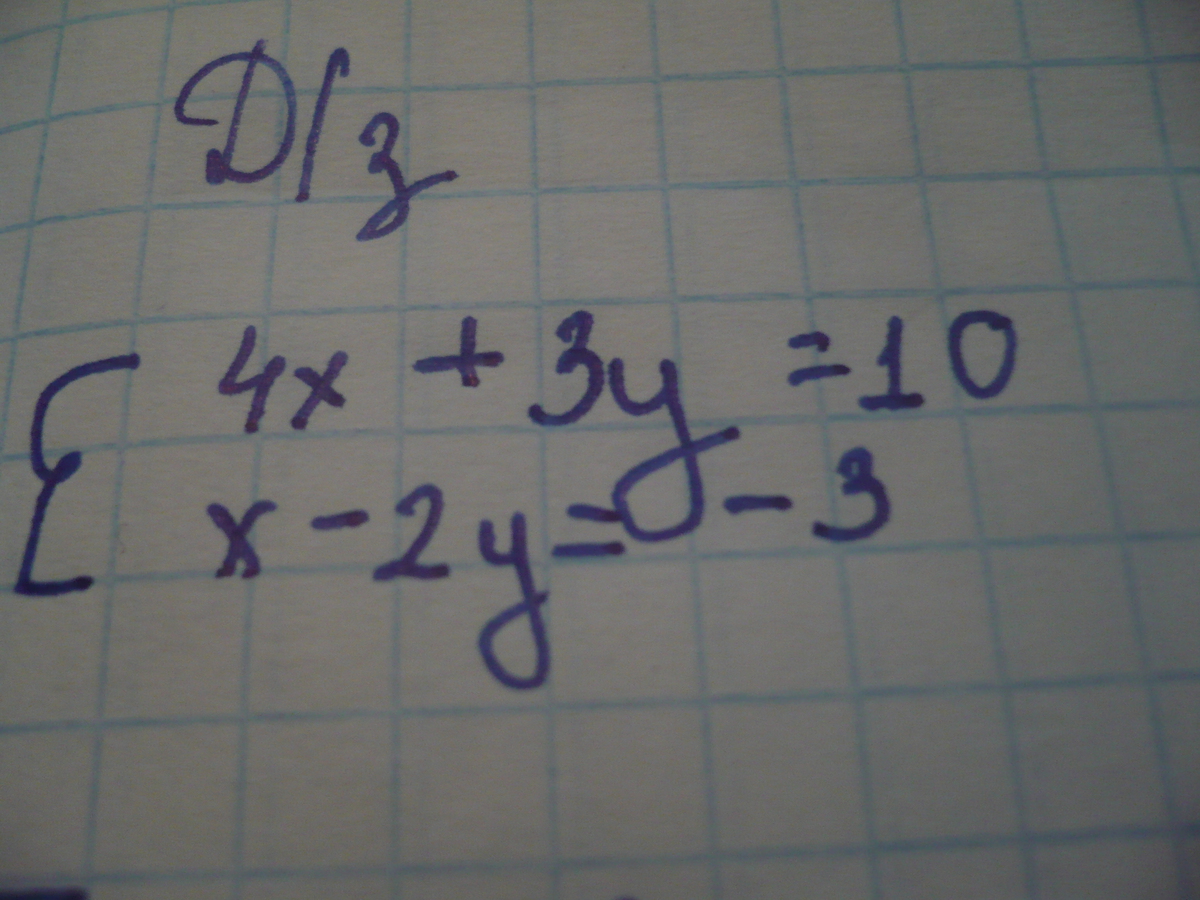 Д/з
4x + 3y = 10
x - 2y = - 3